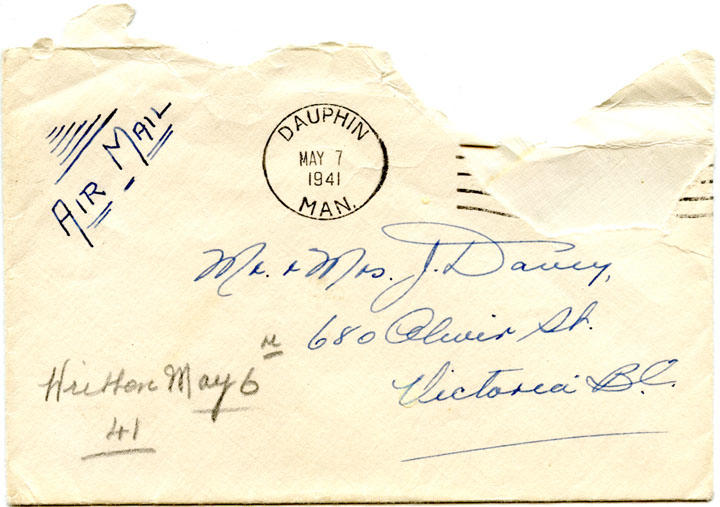 AIR MAIL
DAUPHIN
MAY 7
1941
MAN.
Mr. & Mrs. J. Davey,
680 Oliver St.
Victoria B.C.
Written May 6
41